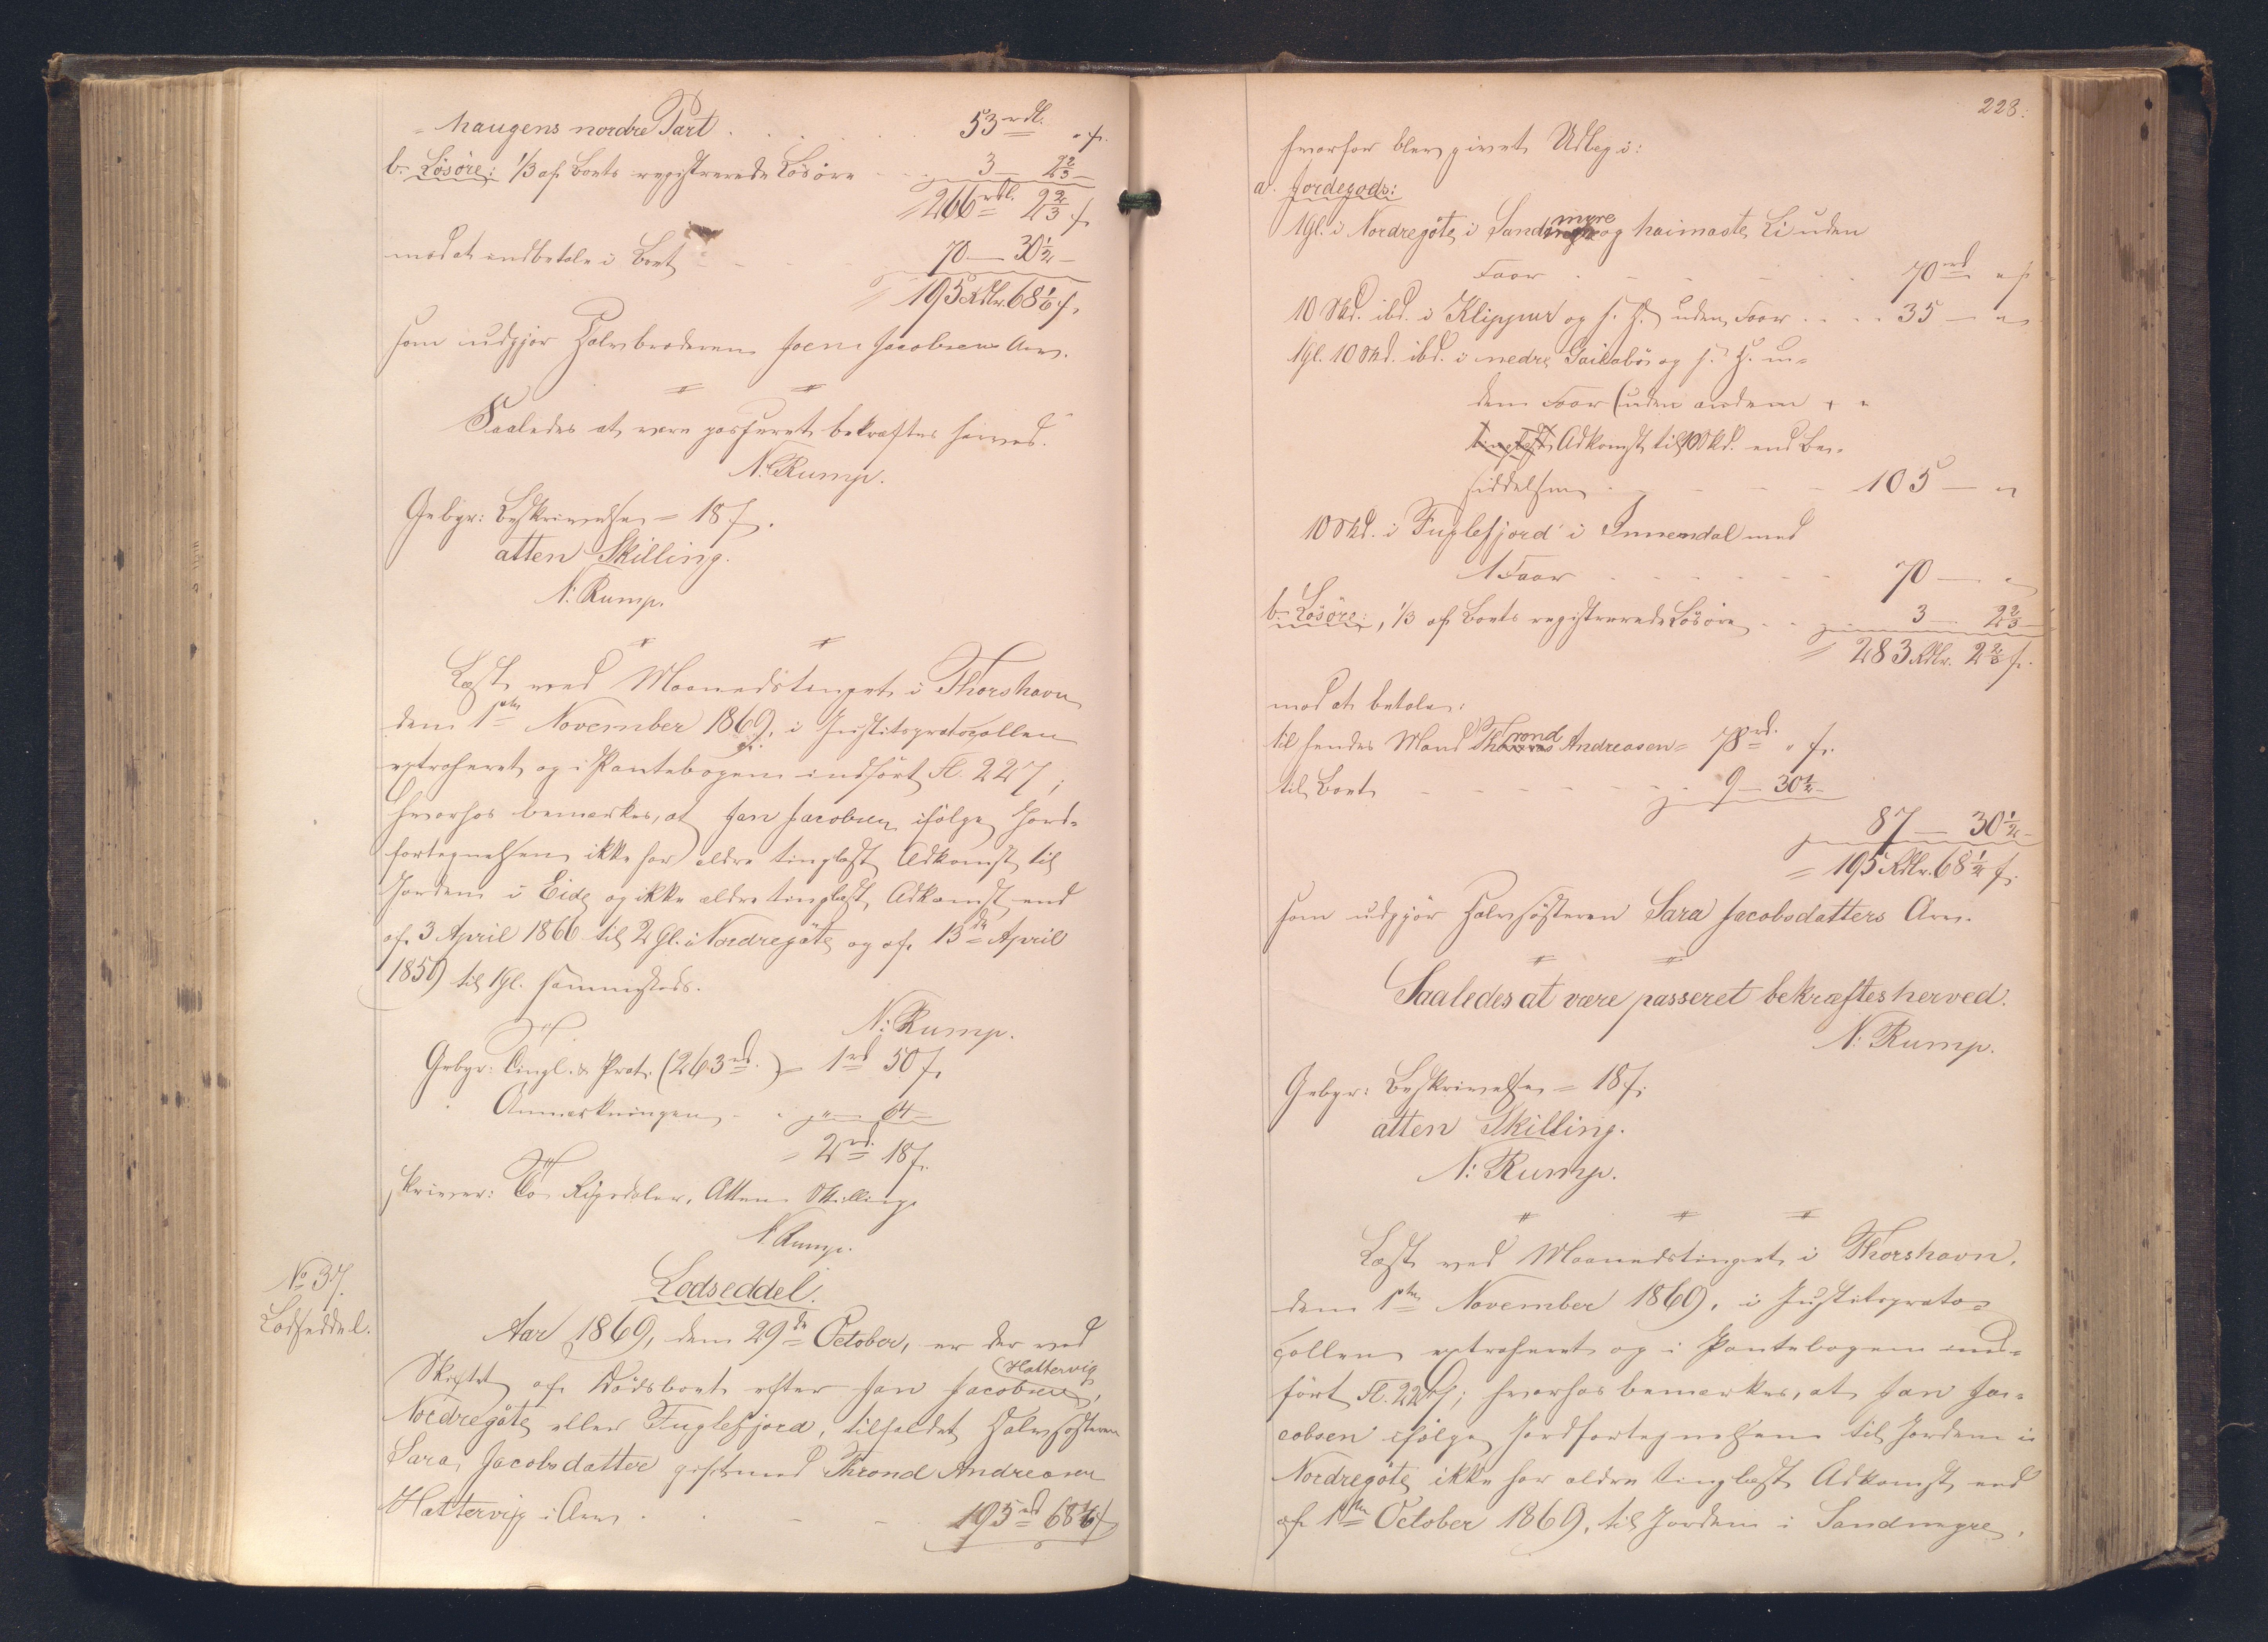 haugens nordre Part . . . . . 53 rdl. " f.
b. Lösöre: 1/3 af Boets registrerede Lösöre - - 3 — 2 2/3 —
= 266 rdl. 2 2/3 f.
mod at indbetale i Boet - - - 70 — 30 1/2 —
= 195 Rdlr. 68 1/6 f.
som udgjør Halvbroderen Joen Jacobsens Arv.
Saaledes at være passeret bekræftes herved.
N. Rump.
Gebyr: Beskrivelsen = 18 f.
atten Skilling.
N. Rump.
Læst ved Maanedstinget i Thorshavn
den 1ste November 1869, i Justitsprotocollen
extraheret og i Pantebogen indført Fl. 227;
hvorhos bemærkes, at Jan Jacobsen ifølge Jord-
fortegnelsen ikke har ældre tinglæst Adkomst til
Jorden i Eide og ikke ældre tinglæst Adkomst end
af 3 April 1866 til 2 Gl. i Nordregöte og af 13de April
1859 til 1 Gl. sammesteds.
N. Rump.
Gebyr: Tingl. & Prot. (263 rd.) = 1 rd 50 f.
Anmærkningen - - " — 64 —
= 2 rd. 18 f.
skriver: To Rigsdaler, Atten Skilling.
N. Rump.
No 37.
Lodseddel.
Lodseddel.
Aar 1869, den 29de October, er der ved
Skiftet af Dødsboet efter Jan Jacobsen (Hattervig),
Nordregöte eller Fuglefjord, tilfaldet Halvsøsteren
Sara Jacobsdatter gift med Thrond Andreasen
Hattervig i Arv . - - 195 rd 68 1/6 f
228.
hvorfor blev givet Udlæg i:
a. Jordegods:
1 Gl. i Nordregöte i Sandmyre og haimaste Li uden
Faar . - - - 70 rd " f
10 Skd. ibd. i Klippur og s. H. uden Faar . . . . 35 — "
1 Gl. 10 Skd. ibd. i nedre Gailabö og s. H. u-
den Faar (uden anden + "
tinglæst Adkomst til 10 Skd. end Be-
siddelsen - - - - 105 — "
10 Skd. i Fuglefjord i Innendal med
1 Faar - - - - - 70 — "
b. Lösöre, 1/3 af Boets registrerede Lösöre - - 3 — 2 2/3 —
= 283 Rdlr. 2 2/3 f.
mod at betale:
til hendes Mand Thrond Andreasen = 78 rd. " f.
til Boet - - - - - - 9 — 30 1/2 —
87 — 30 1/2 —
= 195 Rdlr. 68 1/2 f.
som udgjør Halvsøsteren Sara Jacobsdatters Arv.
Saaledes at være passeret bekræftes herved.
N. Rump.
Gebyr: Beskrivelsen = 18 f.
atten Skilling.
N. Rump.
Læst ved Maanedstinget i Thorshavn,
den 1ste November 1869, i Justitsproto-
collen extraheret og i Pantebogen ind-
ført Fl. 227; hvorhos bemærkes, at Jan Ja-
cobsen ifølge Jordfortegnelsen til Jorden i
Nordregöte ikke har ældre tinglæst Adkomst end
af 1ste October 1869, til Jorden i Sandmyre,